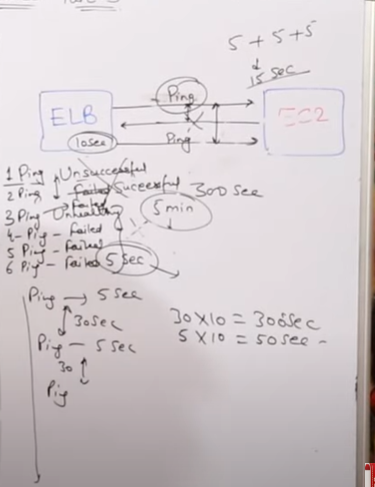 5 + 5 + 5
15 Sec
Ping
ELB
EC2
10sec
Ping
1 Ping Unsuccessful
2 Ping Failed Successful 300 Sec
Failed
3 Ping Unhealthy
5 min
4- Ping - Failed
5 Ping - Failed
6 Ping - Failed 5 Sec
Ping → 5 Sec
30 Sec
Ping - 5 Sec
30
Ping
30 X 10 = 300 Sec
5 X 10 = 50 Sec -